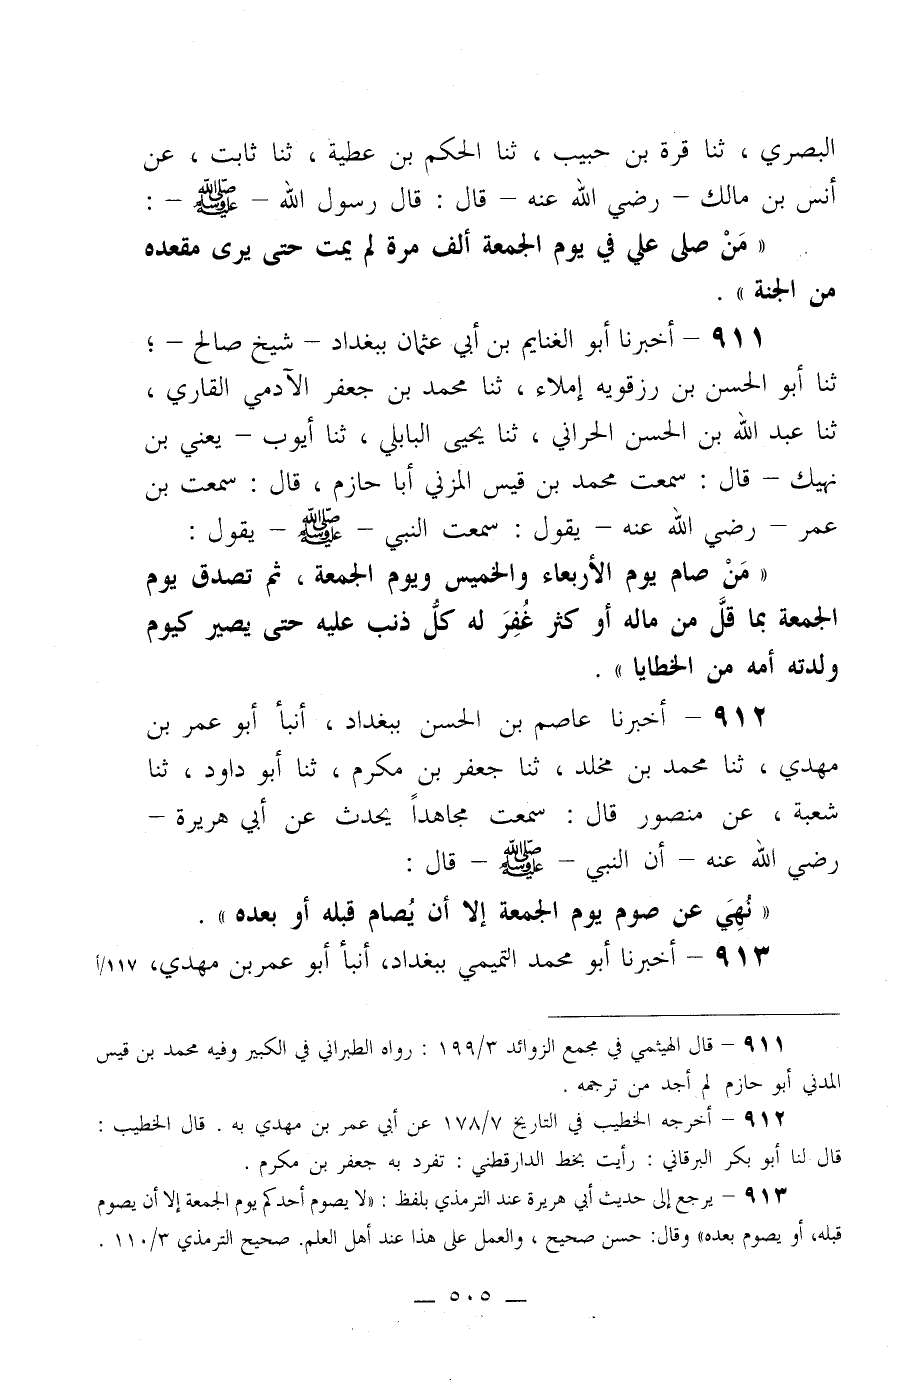 البصري ، ثنا قرة بن حبيب ، ثنا الحكم بن عطية ، ثنا ثابت ، عن
أنس بن مالك – رضي الله عنه – قال : قال رسول الله – ﷺ – :
« مَنْ صلى علي في يوم الجمعة ألف مرة لم يمت حتى يرى مقعده
من الجنة » .
٩١١ – أخبرنا أبو الغنايم بن أبي عثمان ببغداد – شيخ صالح – ؛
ثنا أبو الحسن بن رزقويه إملاء ، ثنا محمد بن جعفر الآدمي القاري ،
ثنا عبد الله بن الحسن الحراني ، ثنا يحيى البابلي ، ثنا أيوب – يعني بن
نهيك – قال : سمعت محمد بن قيس المزني أبا حازم ، قال : سمعت بن
عمر – رضي الله عنه – يقول : سمعت النبي – ﷺ – يقول :
« مَنْ صام يوم الأربعاء والخميس ويوم الجمعة ، ثم تصدق يوم
الجمعة بما قلَّ من ماله أو كثر غُفِرَ له كلُّ ذنب عليه حتى يصير كيوم
ولدته أمه من الخطايا » .
٩١٢ – أخبرنا عاصم بن الحسن ببغداد ، أنبأ أبو عمر بن
مهدي ، ثنا محمد بن مخلد ، ثنا جعفر بن مكرم ، ثنا أبو داود ، ثنا
شعبة ، عن منصور قال : سمعت مجاهداً يحدث عن أبي هريرة –
رضي الله عنه – أن النبي – ﷺ – قال :
« نُهِيَ عن صوم يوم الجمعة إلا أن يُصام قبله أو بعده » .
٩١٣ – أخبرنا أبو محمد التميمي ببغداد، أنبأ أبو عمربن مهدي، ١١٧/أ
٩١١ – قال الهيثمي في مجمع الزوائد ١٩٩/٣ : رواه الطبراني في الكبير وفيه محمد بن قيس
المدني أبو حازم لم أجد من ترجمه .
٩١٢ – أخرجه الخطيب في التاريخ ١٧٨/٧ عن أبي عمر بن مهدي به . قال الخطيب :
قال لنا أبو بكر البرقاني : رأيت بخط الدارقطني : تفرد به جعفر بن مكرم .
٩١٣ – يرجع إلى حديث أبي هريرة عند الترمذي بلفظ : «لا يصوم أحدكم يوم الجمعة إلا أن يصوم
قبله، أو يصوم بعده» وقال: حسن صحيح ، والعمل على هذا عند أهل العلم. صحيح الترمذي ١١٠/٣ .
— ٥٠٥ —